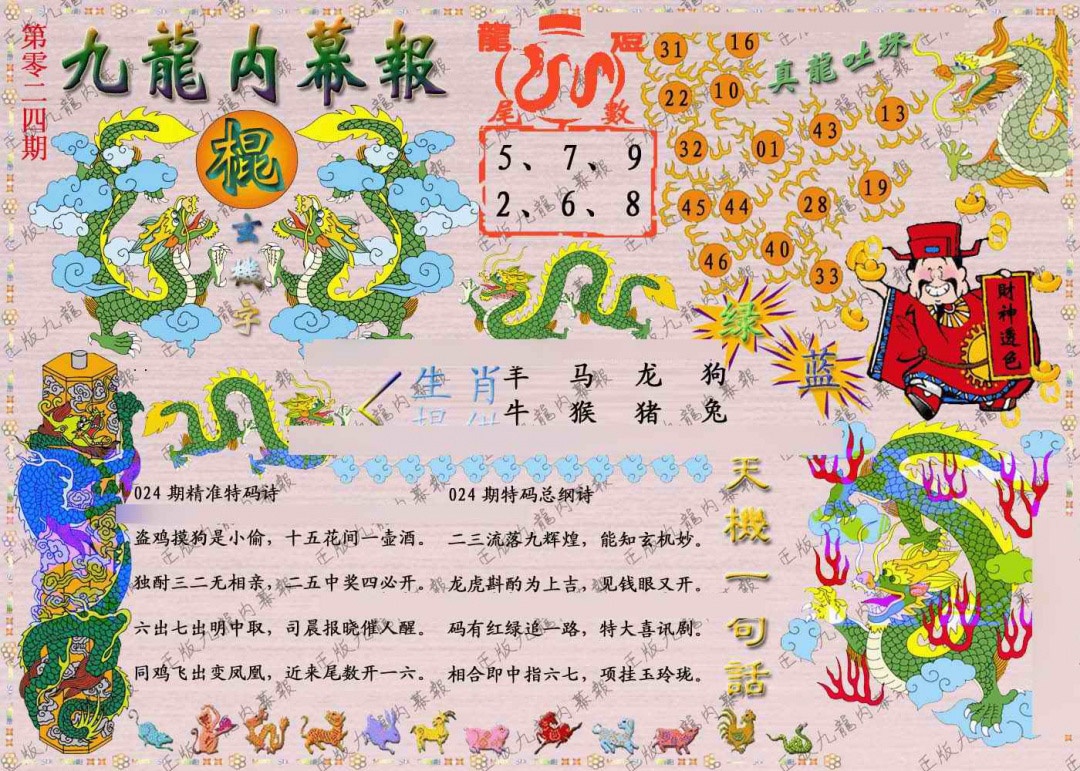 第零二四期
九龍内幕報
棍
玄機字
龍
尾數
5、7、9
2、6、8
31
16
22
10
43
13
32
01
45
44
28
19
46
40
33
真龍吐珠
绿
蓝
財神透色
生肖
羊 马 龙 狗
牛 猴 猪 兔
024 期精准特码诗
盗鸡摸狗是小偷，十五花间一壶酒。
独酎三二无相亲，二五中奖四必开。
六出七出明中取，司晨报晓催人醒。
同鸡飞出变凤凰，近来尾数开一六。
024 期特码总纲诗
二三流落九辉煌，能知玄机妙。
龙虎斟酌为上吉，见钱眼又开。
码有红绿追一路，特大喜讯剧。
相合即中指六七，项挂玉玲珑。
天機一句話
正版九龍内幕報